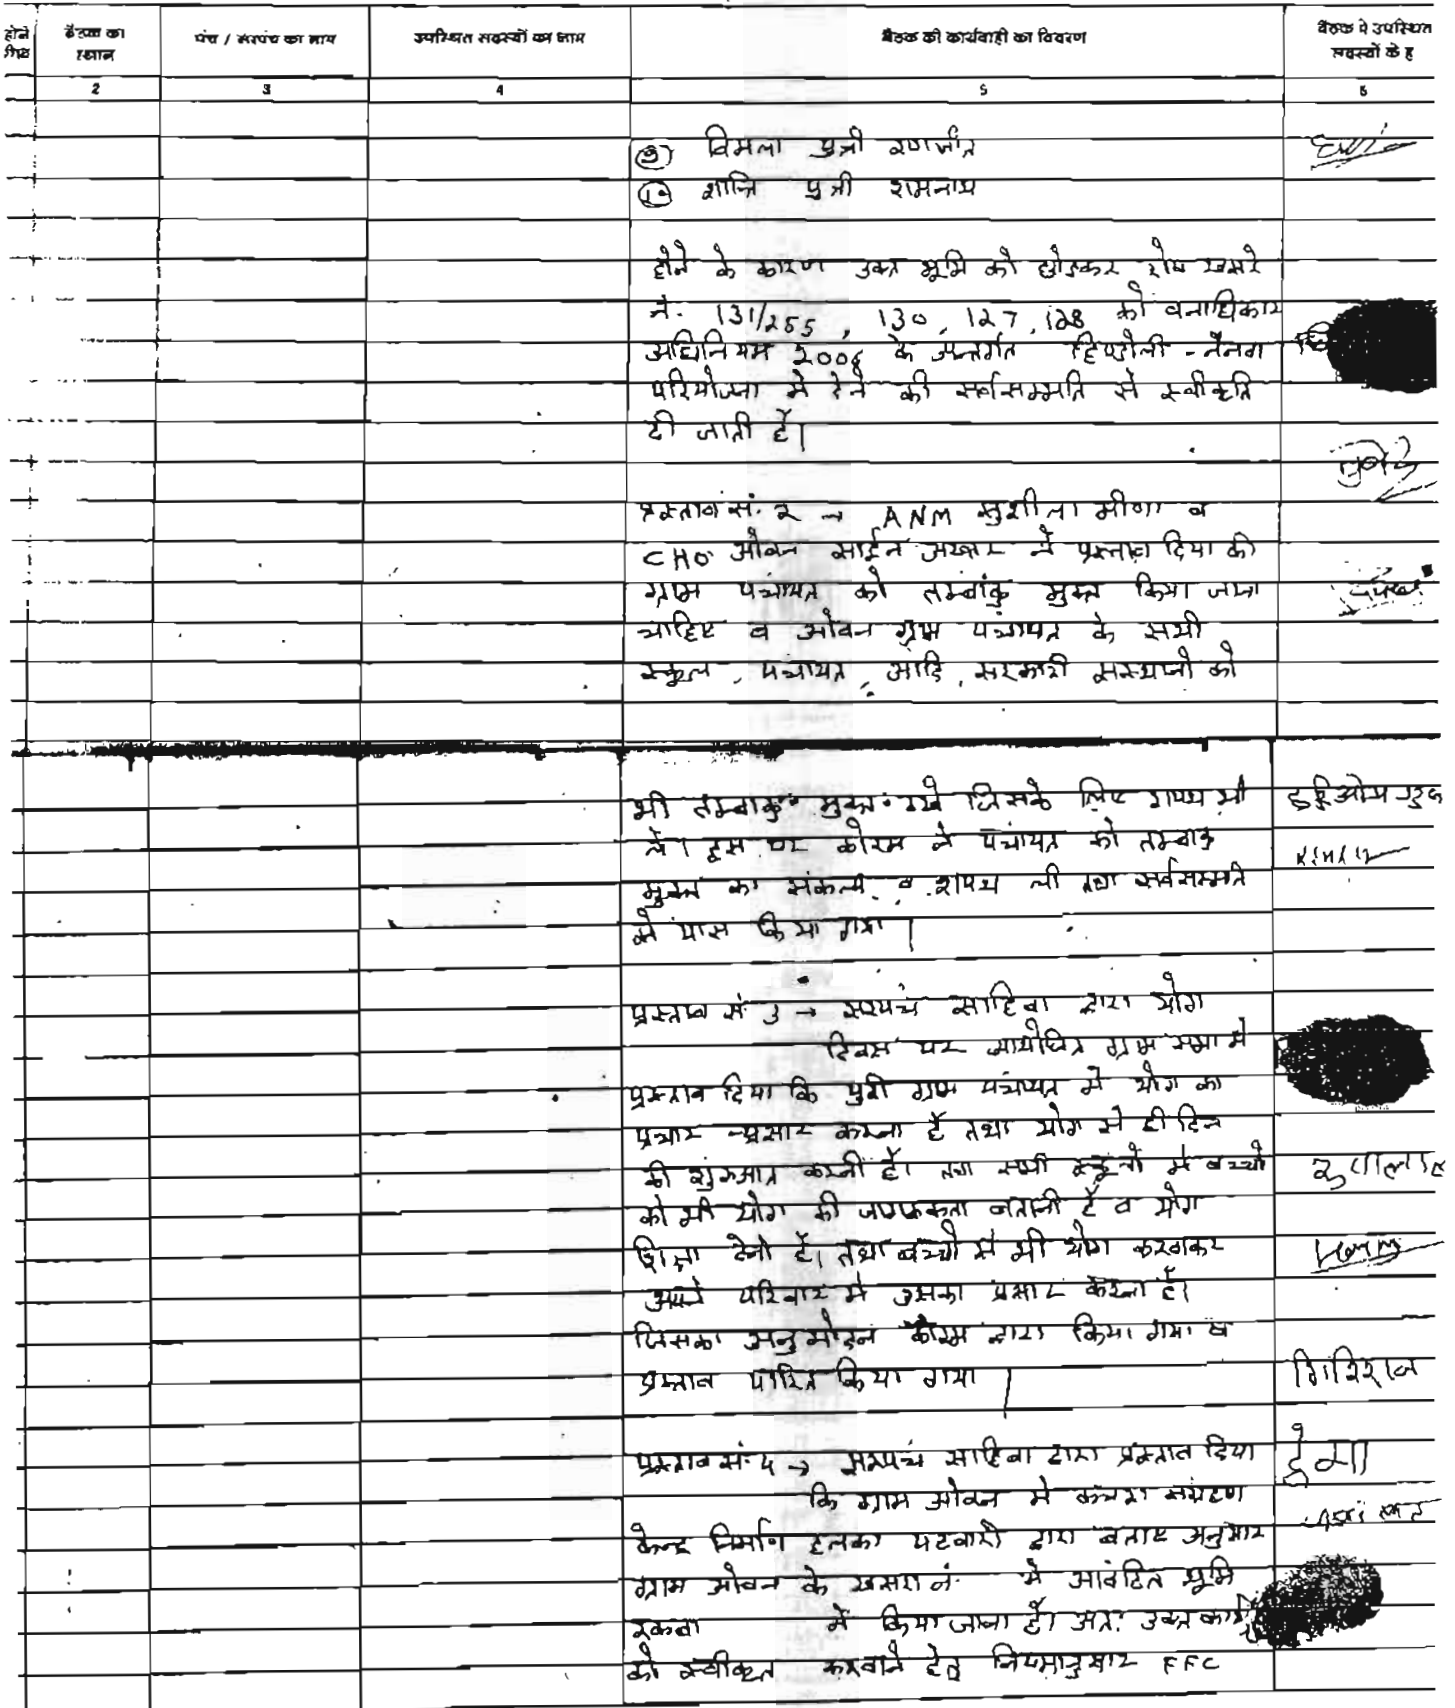 बैठक का
स्थान
पंच / सरपंच का नाम
उपस्थित सदस्यों का नाम
बैठक की कार्यवाही का विवरण
बैठक मे उपस्थित
सदस्यों के ह
2 3 4 5 6
(9) विमला पुत्री रणजीत
(10) शान्ति पुत्री रामनाथ
होने के कारण उक्त भूमि को छोडकर शेष खसरे
नं. 131/255, 130, 127, 128 को वनाधिकार
अधिनियम 2006 के अन्तर्गत हिण्डोली - नैनवा
परियोजना मे देने की सर्वसम्मति से स्वीकृति
दी जाती है।
प्रस्ताव सं. 2 → ANM सुशीला मीणा व
CHO ओवन ने प्रस्ताव दिया की
ग्राम पंचायत को तम्बाकु मुक्त किया जाना
चाहिए व ओवन ग्राम पंचायत के सभी
स्कूल, पंचायत, आदि, सरकारी संस्थानो को
भी तम्बाकु मुक्त रखे जिसके लिए शपथ भी
ले। इस पर कोरम ने पंचायत को तम्बाकु
मुक्त का संकल्प व शपथ ली तथा सर्वसम्मति
से पास किया गया।
प्रस्ताव सं. 3 → सरपंच साहिबा द्वारा योग
दिवस पर आयोजित ग्राम सभा मे
प्रस्ताव दिया कि पुरी ग्राम पंचायत मे योग का
प्रचार -प्रसार करना है तथा योग से ही दिन
की शुरुआत करनी है। तथा सभी स्कूलो मे बच्चो
को भी योग की जागरूकता बतानी है व योग
शिक्षा देनी है। तथा बच्चो से भी योग करवाकर
अपने परिवार मे उसका प्रसार करना है।
जिसका अनुमोदन कोरम द्वारा किया गया व
प्रस्ताव पारित किया गया।
गिरिराज
प्रस्ताव सं. 4 → सरपंच साहिबा द्वारा प्रस्ताव दिया
हेमा
कि ग्राम ओवन मे कचरा संग्रहण
केन्द्र निर्माण हलका पटवारी द्वारा बताए अनुसार
ग्राम ओवन के खसरा नं. मे आवंटित भूमि
रकबा में किया जाना है। अत: उक्त कार्य
को स्वीकृत करवाने हेतु नियमानुसार FFC